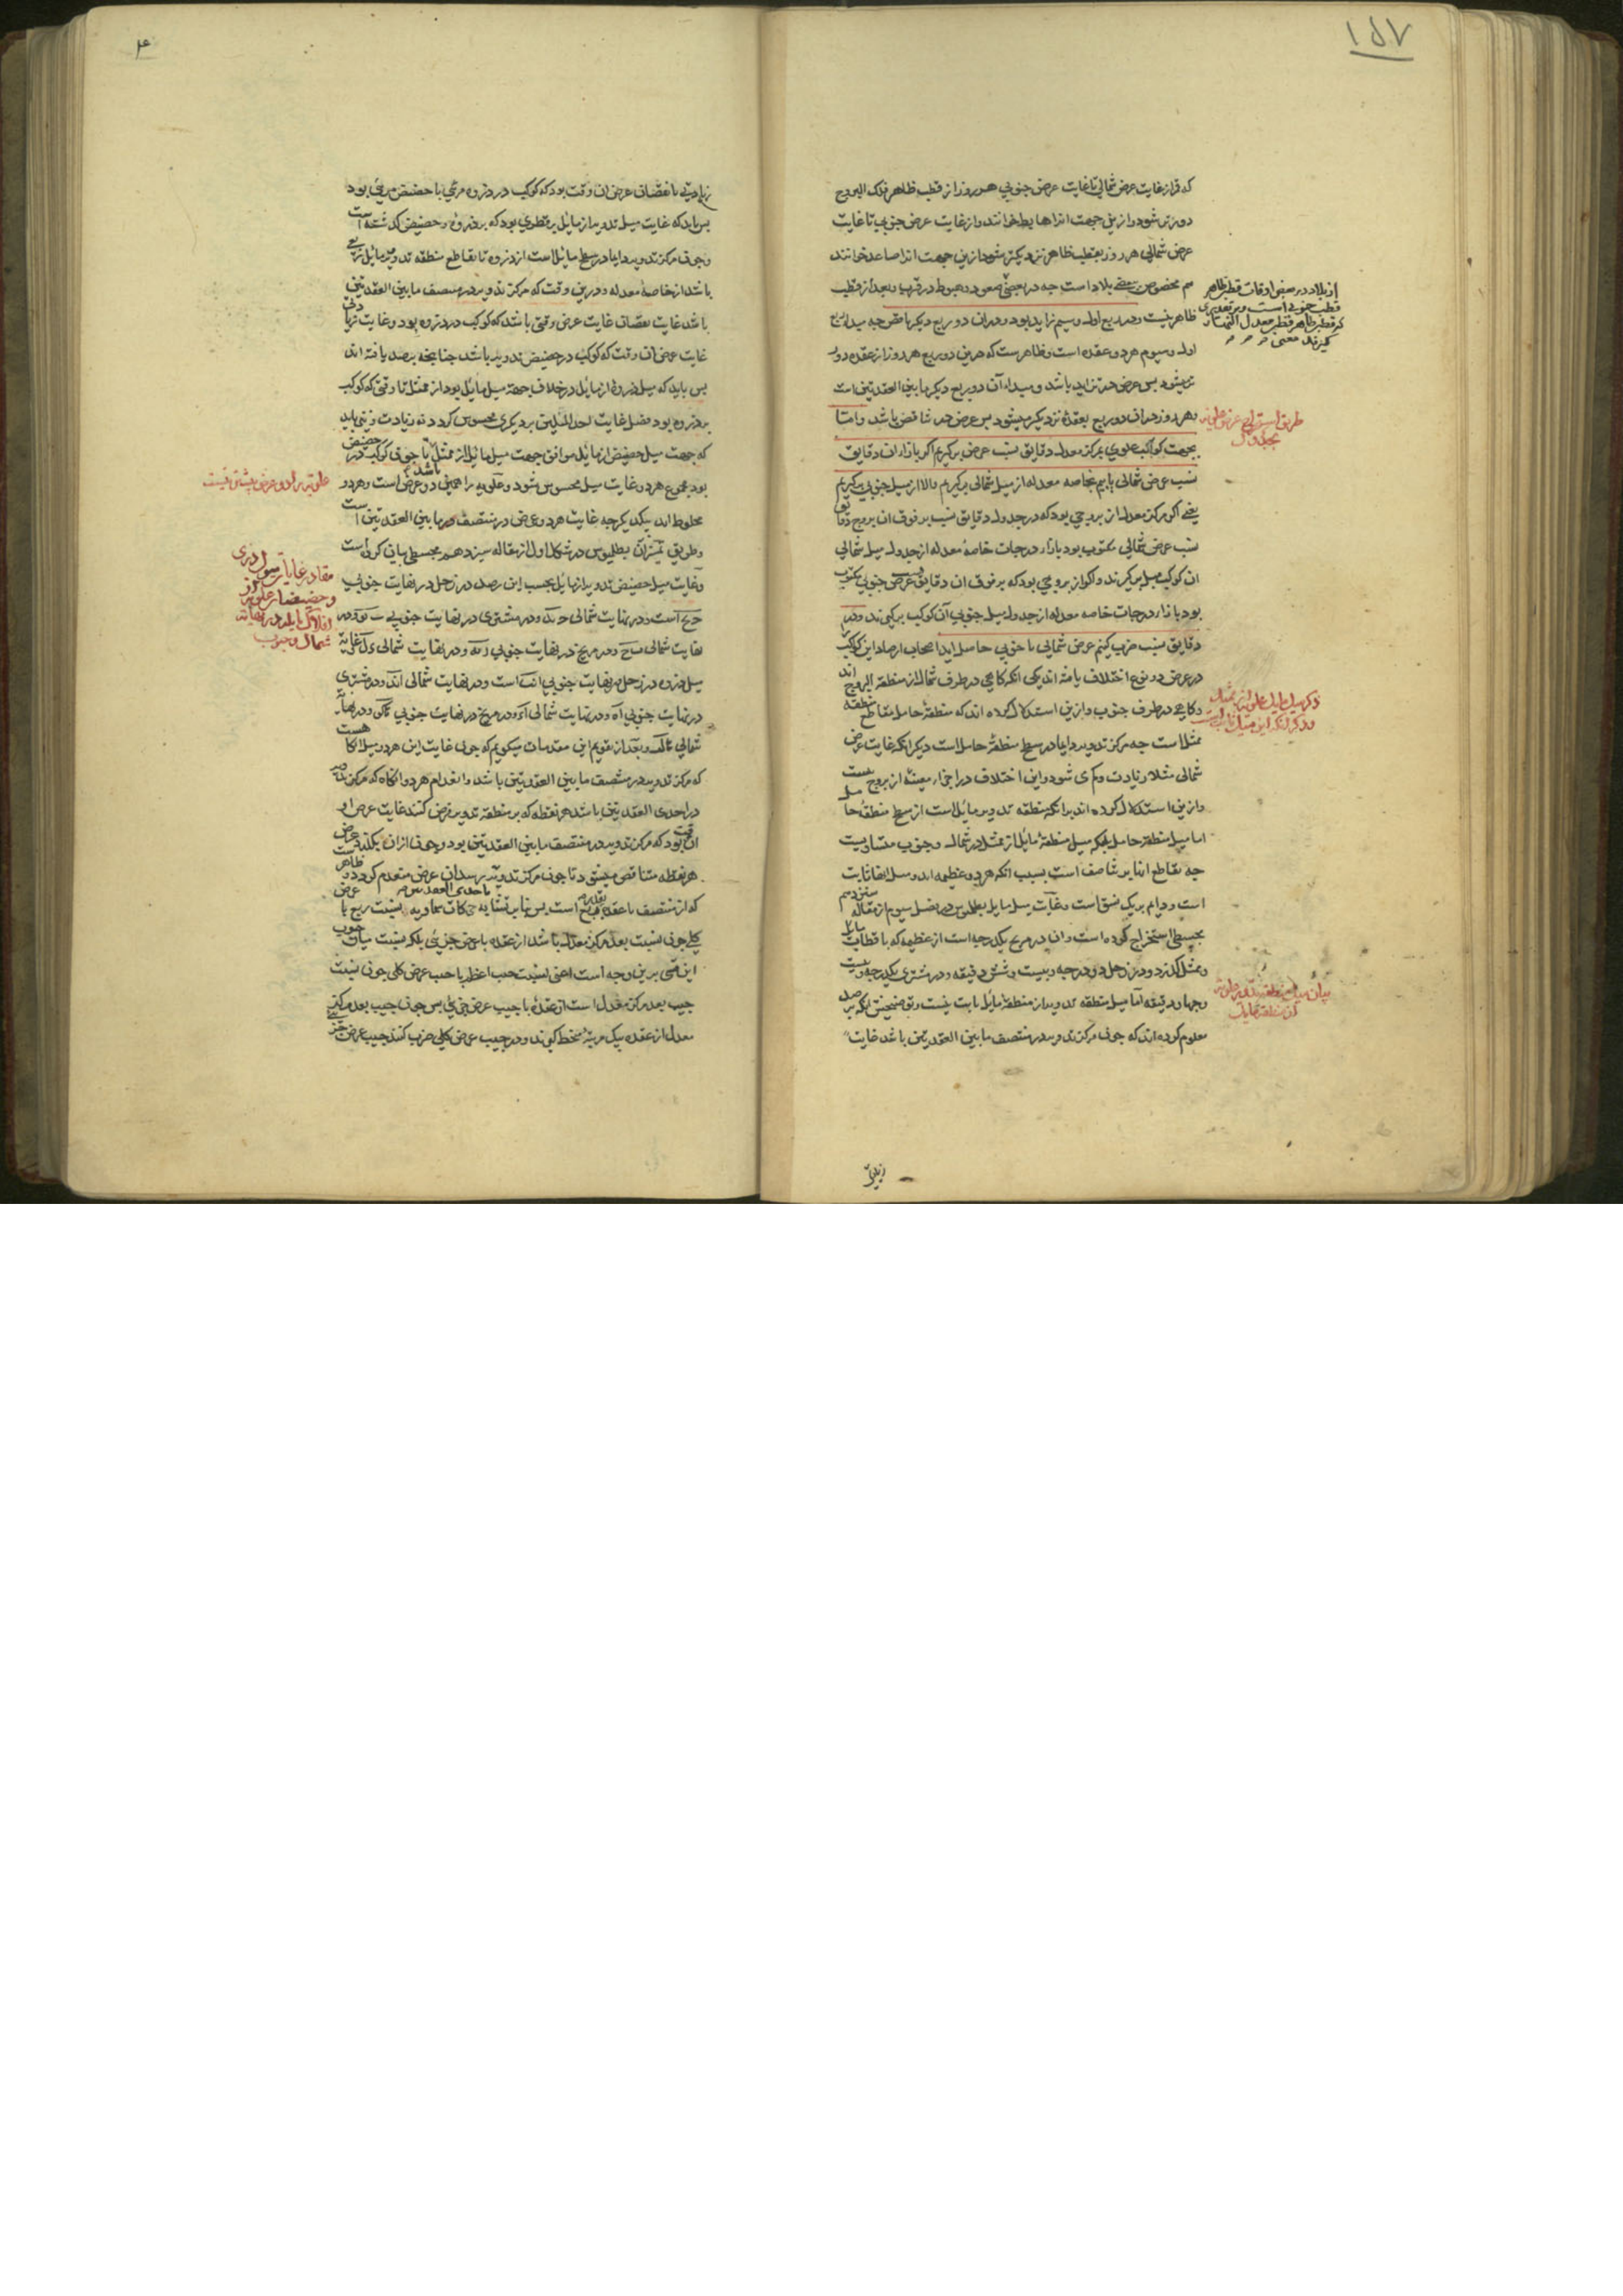 ۱۵۷
که قمر از غایت عرض شمالی تا غایت عرض جنوبی هر روز از قطب ظاهر فلک البروج
دورتر شود و ازین جهت انرا هابط خوانند و از غایت عرض جنوبی تا غایت
عرض شمالی هر روز بقطب ظاهر نزدیکتر شود ازین جهت انرا صاعد خوانند
هم مخصوص ببعضی بلاد است چه در بعضی صعود و هبوط در قرب و بعد از قطب
ظاهر نیست و در ربع اول و سیم زاید بود و در ان دو ربع دیکر ناقص چه مبداء ربع
اول و سیوم هر دو عقده است و ظاهرست که درین دو ربع هر روز از عقده دور
تر میشود بس عرض در تزاید باشد و مبداء آن دو ربع دیکر مابین العقدتین است
و هر روز در ان دو ربع بعقده نزدیکتر میشود بس عرض در تناقص باشد و اما
بجهت کواکب علوی بمرکز معدل دقایق نسب عرض برکیریم اکر بازاء ان دقایق
نسب عرض شمالی یابیم بخاصه معدله از میل شمالی برکیریم والا از میل جنوبی برکیریم
یعنی اکر مرکز معدل از بروجی بود که در جدول دقایق نسب بر فوق ان بروج دقایق
نسب عرض شمالی مکتوب بود بازاء درجات خاصهٔ معدله از جدول میل شمالی
ان کوکب میل برکیرند و اکر از بروجی بود که بر فوق ان دقایق نسب عرض جنوبی مکتوب
بود بازاء درجات خاصه معدله از جدول میل جنوبی آن کوکب برکیرند و در
دقایق نسب ضرب کنیم عرض شمالی یا جنوبی حاصل اید اصحاب ارصاد این کواکب
در عرض دو نوع اختلاف یافته اند یکی انکه کاهی در طرف شمال از منطقة البروج اند
و کاهی در طرف جنوب و ازین استدلال کرده اند که منطقهٔ حامل مقاطع منطقه
ممثل است چه مرکز تدویر دایما در سطح منطقهٔ حامل است دیکر انکه غایت عرض
شمالی مثلا زیادت و کم می شود و این اختلاف در اجزاء معینهٔ از بروج نیست
و ازین استدلال کرده اند بر انکه منطقه تدویر مایل است از سطح منطقهٔ حامل
اما میل منطقهٔ حامل بلکه میل منطقهٔ مایل از ممثل در شمال و جنوب متساویست
چه تقاطع ایشان بر تناصف است بسبب انکه هر دو عظیمه اند و میل ایشان ثابت
است و دایم بریک نسق است و غایت میل مایل بطلمیوس در فصل سیوم از مقاله سیزدهم
مجسطی استخراج کرده است و ان در مریخ یکدرجه است از عظیمه که باقطاب مایل
و ممثل کذرد و در زحل دو درجه و بیست و شش دقیقه و در مشتری یکدرجه و بیست
و چهار دقیقه اما میل منطقه تدویر از منطقهٔ مایل ثابت نیست و توضیحش انکه برصد
معلوم کرده اند که چون مرکز تدویر در منتصف مابین العقدتین باشد غایت
از بلاد در بعضی اوقات قطب ظاهر
قطب جنوبی است و بر تقدیری
که قطب ظاهر قطب معدل النهار
کیرند معنی
طریق استخراج عرض علویه
بجداول
ذکر میل مایل علویه از ممثل
و ذکر انکه این میل ثابت است
بیان میل منطقه تدویر علویه
از منطقه مایل
زیادتی
۴
زیادتی یا نقصان عرض ان وقت بود که کوکب در ذروه مرئی یا حضیض مرئی بود
بس باید که غایت میل تدویر از مایل بر قطری بود که بر ذروه و حضیض کذشته است
و چون مرکز تدویر دایما در سطح مایل است از ذروه تا تقاطع منطقه تدویر و مایل ربعی
باشد از خاصهٔ معدله و درین وقت که مرکز تدویر در منتصف مابین العقدتین
باشد غایت نقصان غایت عرض وقتی باشد که کوکب در ذروه بود و غایت زیادتی
غایت عرض ان وقت که کوکب در حضیض تدویر باشد چنانچه برصد یافته اند
بس باید که میل ذروهٔ از مایل در خلاف جهة میل مایل بود از ممثل تا وقتی که کوکب
بر ذروه بود فضل غایت احد المیلین بر دیکری محسوس کردد نه زیادت و نیز باید
که جهت میل حضیض از مایل موافق جهت میل مایل از ممثل باشد تا چون کوکب در حضیض
بود مجموع هر دو غایت میل محسوس شود و علویه را همین دو عرض است و هر دو
مخلوط اند بیکدیکر چه غایت هر دو عرض در منتصف مابین العقدتین است
و طریق تمیزان بطلمیوس در شکل اول از مقاله سیزدهم مجسطی بیان کرده است
و غایت میل حضیض تدویر از مایل بحسب این رصد در زحل در نهایت جنوبی
است و در نهایت شمالی و در مشتری در نهایت جنوبی و در
نهایت شمالی و در مریخ در نهایت جنوبی و در نهایت شمالی و غایة
میل ذروه در زحل در نهایت جنوبی است و در نهایت شمالی و در مشتری
در نهایت جنوبی و در نهایت شمالی و در مریخ در نهایت جنوبی و در نهایة
شمالی و بعد از تقویم این مقدمات میکویم که چون غایت این هر دو میل انکاه هست
که مرکز تدویر در منتصف مابین العقدتین باشد و انعدام هر دو انکاه که مرکز تدویر
در احدی العقدتین باشد هر نقطه که بر منطقة تدویر فرض کنند غایت عرض او
ان وقت بود که مرکز تدویر در منتصف مابین العقدتین بود و چون ازان بکذرد عرض
هر نقطه متناقص میشود تا چون مرکز تدویر باحدی العقدتین برسد ان عرض منعدم کردد و ظاهر
که از منتصف تا عقده بعد ربع است بس بنابر تشابه حرکات سماویه نسبت ربع با عرض
کلی چون نسبت بعد مرکز معدل باشد از عقده با عرض جزئی بلکه نسبت میان جیوب
این قسی برین وجه است اعنی نسبت جیب اعظم با جیب عرض کلی چون نسبت
جیب بعد مرکز معدل است از عقدهٔ با جیب عرض جزئی بس چون جیب بعد مرکز
معدل از عقده بیک مرتبهٔ منحط کیرند و در جیب عرض کلی ضرب کنند جیب عرض جزئی
علویه را دو عرض بیشتر نیست
مقادیر غایات میول ذری
و حضیضات علویه از
افلاک مایله در نهایة
شمال و جنوب